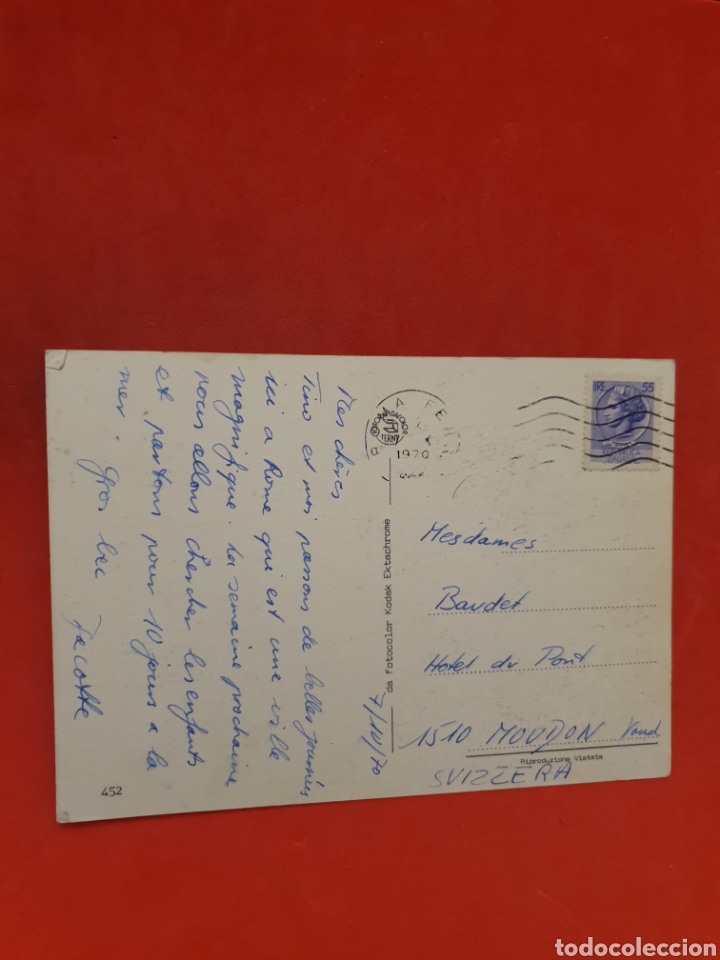 Mes chères
Tino et moi passons de belles journées
ici a Rome qui est une ville
magnifique. La semaine prochaine
nous allons chercher les enfants
et partons pour 10 jours a la
mer. Gros bec
Jacotte
7/10/70
452
da fotocolor Kodak Ektachrome
1970
55
Mesdames
Baudet
Hotel du Pont
1510 MOUDON Vaud
SVIZZERA
Riproduzione Vietata
todocoleccion